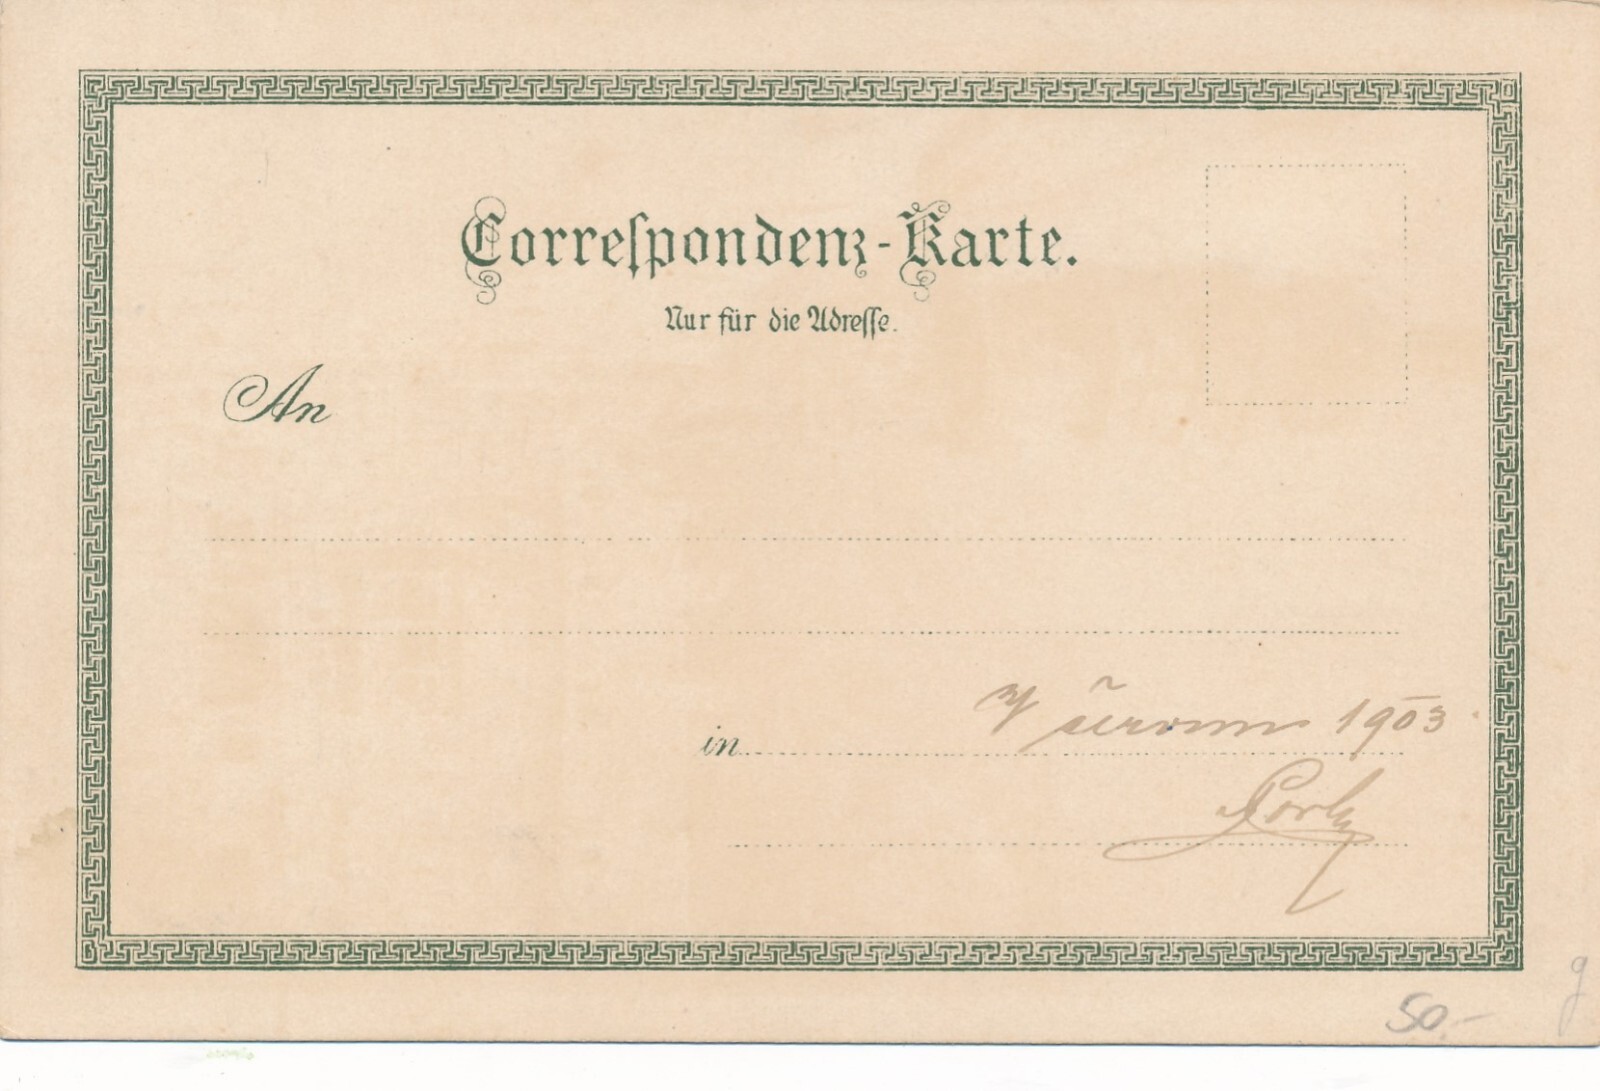 Correspondenz-Karte.
Nur für die Adresse.
An
in
1903
50.-
g